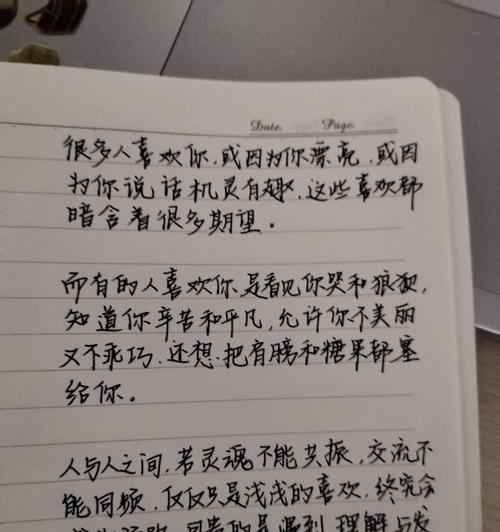 Date. Page.
很多人喜欢你,或因为你漂亮,或因
为你说话机灵有趣,这些喜欢都
暗含着很多期望。
而有的人喜欢你.是看见你哭和狼狈,
知道你辛苦和平凡,允许你不美丽
又不乖巧.还想.把肩膀和糖果都塞
给你。
人与人之间,若灵魂不能共振,交流不
能同频,仅仅只是浅浅的喜欢,终究会
遇到 理解